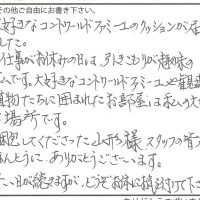 その他ご自由にお書き下さい。
大好きなコントワールドファミーユのクッションが届
した。
仕事がお休みの日は、引きこもりが趣味の
ムです。大好きなコントワールドファミーユと観葉
植物たちに囲まれたお部屋は私の大切
場所です。
梱包してくださった山形様 スタッフの皆
ほんとうに ありがとうございます。
い日が続きますが、どうぞお体に気を付けて下さ